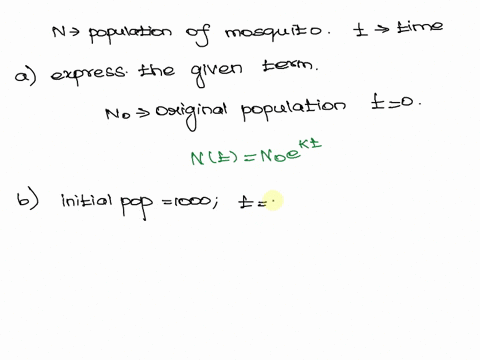 N → population of mosquito. t → time
a) express the given term.
N₀ → original population t=0.
N(t) = N₀e^{Kt}
b) initial pop = 1000; t=